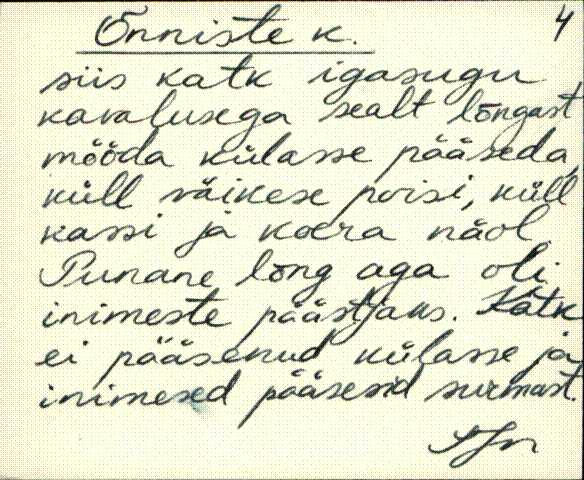 Õnniste k. 4
siis katk igasugu
kavalusega sealt lõngast
mööda külasse pääseda,
küll väikese poisi, küll
kassi ja koera näol.
Punane lõng aga oli
inimeste päästjaks. Katk
ei pääsenud külasse ja
inimesed pääsesid surmast.